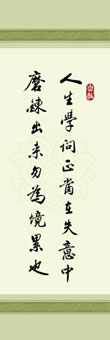 人生學問正當在失意中
磨練出来勿為境累也